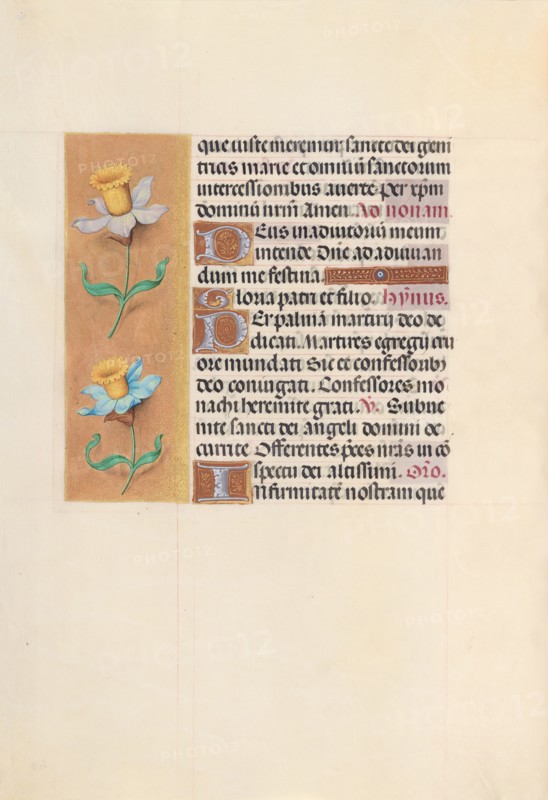 que iuste meremur sancte dei geni
tricis marie et omniū sanctorum
intercessionibus auerte. Per xp̄m
dominū nr̄m Amen. Ad nonam.
Deus in adiutoriū meum
intende Dn̄e ad adiuuan
dum me festina.
Gloria patri et filio. hÿnus.
Per palmā martirij deo de
dicati. Martires egregij cru
ore mundati Sic et confessorib9
deo coniugati. Confessores mo
nachi heremite grati. V. Subue
nite sancti dei angeli domini oc
currite Offerentes p̄ces nr̄as in cō
spectu dei altissimi. Or̄o.
Infirmitatē nostram que
PHOTO12